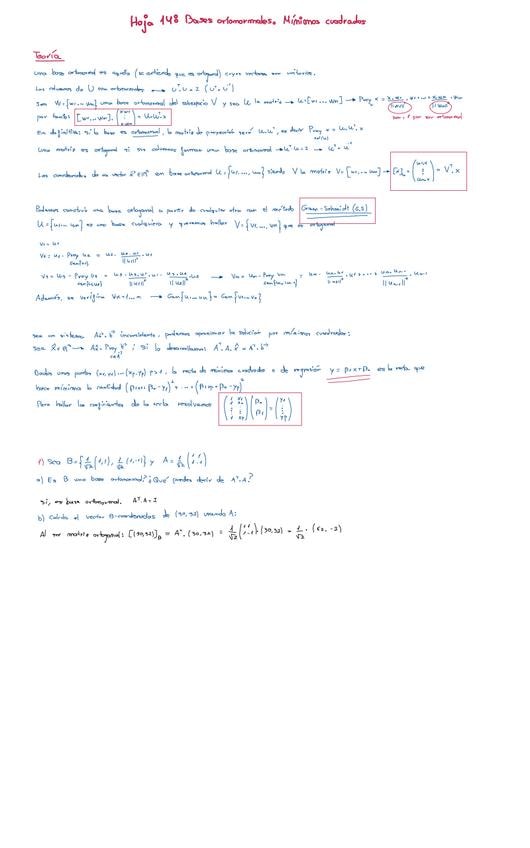 Hoja 14: Bases ortonormales. Mínimos cuadrados
Teoría
Una base ortonormal es aquella (se entiende que es ortogonal) cuyos vectores son unitarios.
Las columnas de U son ortonormales → Uᵗ.U = I (Uᵗ=U⁻¹)
Sea W={w₁...wₘ} una base ortonormal del subespacio V y sea U la matriz → U=[w₁...wₘ] → Proy x =
por tanto: [w₁...wₘ]. = U.Uᵗ.x
En definitiva: si la base es ortonormal, la matriz de proyección será U.Uᵗ, es decir Proy x = U.Uᵗ.x
Una matriz es ortogonal si sus columnas forman una base ortonormal → Uᵗ.U=I → Uᵗ=U⁻¹
Las coordenadas de un vector x∈Rⁿ en base ortonormal U={u₁...uₙ} siendo V la matriz V=[u₁...uₙ] → [x]ᵤ = = Vᵗ.x
Podemos construir una base ortogonal a partir de cualquier otra con el método Gram-Schmidt (G.S)
U={u₁...uₘ} es una base cualquiera y queremos hallar V={v₁...vₘ} que es ortogonal
v₁=u₁
Además, se verifica → Gen{u₁...uₖ} = Gen{v₁...vₖ}
Sea un sistema Ax=b inconsistente, podemos aproximar la solución por mínimos cuadrados:
; si lo desarrollamos: Aᵗ.A.x̂ = Aᵗ.b
Dados unos puntos (x₁,y₁)...(xₚ,yₚ) p>1, la recta de mínimos cuadrados o de regresión y=β₁x+β₀ es la recta que
hace mínima la cantidad (β₁x₁+β₀-y₁)²+...+(β₁xₚ+β₀-yₚ)²
Para hallar los coeficientes de la recta resolvemos
1) Sea B={1/√2(1,1), 1/√2(1,-1)} y A=1/√2(1 1 1 -1)
a) Es B una base ortonormal? ¿Qué puedes decir de Aᵗ.A?
Sí, es base ortonormal. Aᵗ.A=I
b) Calcula el vector B-coordenadas de (30,32) usando A:
Al ser matriz ortogonal: [(30,32)]_B = Aᵗ.(30,32) = 1/√2(1 1 1 -1).(30,32) = 1/√2.(62,-2)